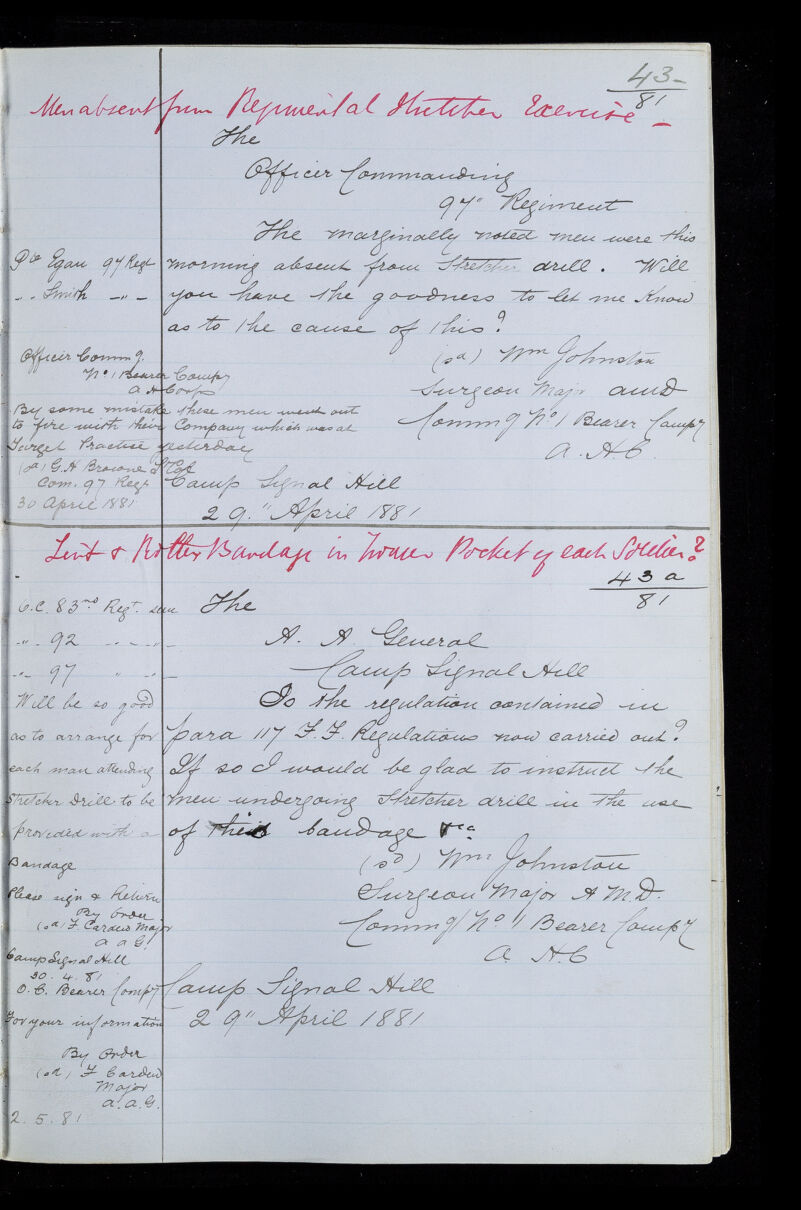 43
81
Men absent from Regimental Stretcher Exercise
The
Officer Commanding
97" Regiment
The marginally noted men were this
morning absent from Stretcher drill. Will
you have the goodness to let me Know
as to the cause of this?
(sd) Wm Johnston
Surgeon Major AMD
Commg No 1 Bearer Compy
A. H. C.
Camp Signal Hill
29" April 1881
Pte Egan 97 Regt
" " Smith — " —
Officer Commg.
No 1 Bearer Compy
A H Corps
By some mistake these men went out
to fire with their Company which was at
Target Practice yesterday
(sd) G. H Browne Lt Col
Com. 97 Regt
30 April 1881
Lint & Roller Bandage in Trouser Pocket of each Soldier?
43a
81
The
A. A. General
Camp Signal Hill
Is the regulation contained in
para 117 F.F. Regulations now carried out?
If so I would be glad to instruct the
men undergoing Stretcher drill in the use
of bandage &ca
(sd) Wm Johnston
Surgeon Major A M.D.
Commg No 1 Bearer Compy
A. H. C
Camp Signal Hill
29" April 1881
O.C. 83rd Regt.
" " 92 " "
" " 97 " "
Will be so good
as to arrange for
each man attending
Stretcher Drill to be
provided with a
Bandage
Please sign & Return
By Order
(sd) F. Cardew Major
A a G.
Camp Signal Hill
30. 4. 81
O. C. Bearer Compy
For your information
By Order
(sd) F Cardew
Major
a.a.G.
2. 5. 81